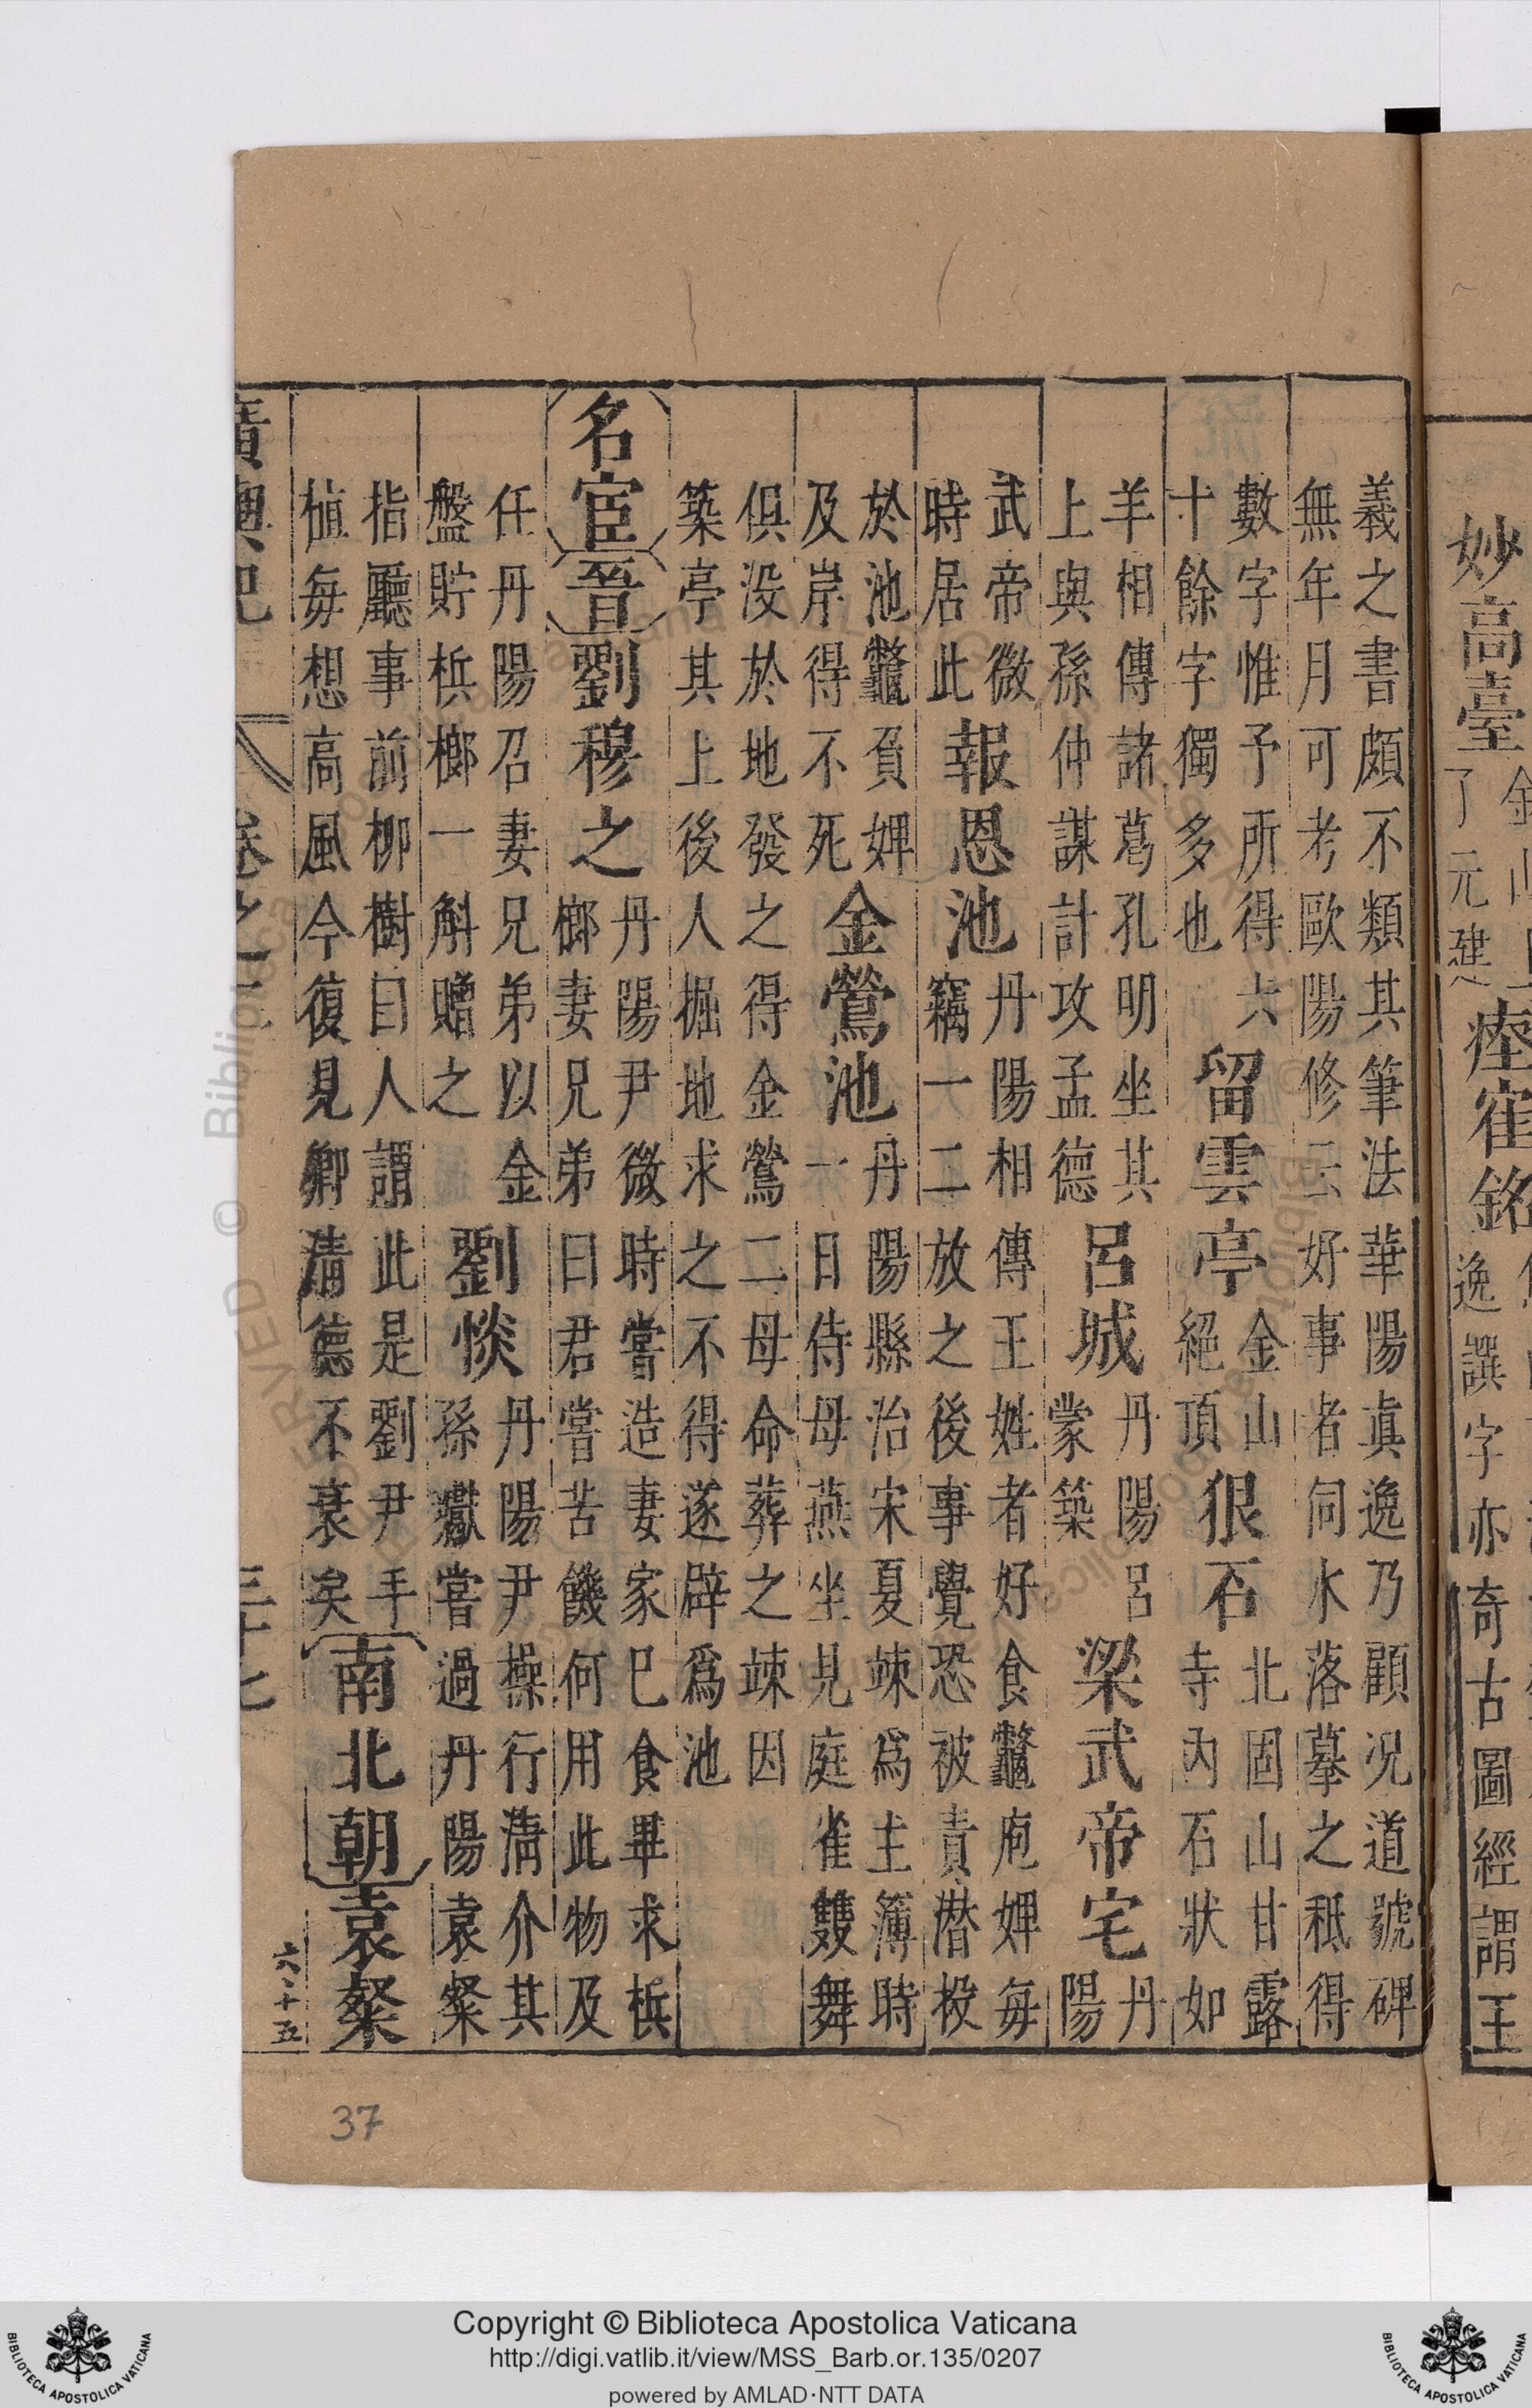 妙高臺
了元建
瘞寉銘
逸譔字亦奇古圖經謂王
羲之書頗不類其筆法華陽真逸乃顧况道號碑
無年月可考歐陽修云好事者伺水落摹之秪得
數字惟予所得六
十餘字獨多也
留雲亭
金山
絕頂
狠石
北固山甘露
寺內石狀如
羊相傳諸葛孔明坐其
上與孫仲謀計攻孟德
呂城
丹陽呂
蒙築
梁武帝宅
丹
陽
武帝微
時居此
報恩池
丹陽相傳王姓者好食鼈庖婢每
竊一二放之後事覺恐被責潜投
於池鼈負婢
及岸得不死
金鶯池
丹陽縣治宋夏竦爲主簿時
一日侍母燕坐見庭雀雙舞
俱没於地發之得金鶯二母命葬之竦因
築亭其上後人掘地求之不得遂辟爲池
名宦
晉
劉穆之
丹陽尹微時嘗造妻家巳食畢求梹
榔妻兄弟曰君嘗苦饑何用此物及
任丹陽召妻兄弟以金
盤貯梹榔一斛贈之
劉惔
丹陽尹操行清介其
孫瓛嘗過丹陽袁粲
指廳事前柳樹曰人謂此是劉尹手
植每想高風今復見卿清德不衰矣
南北朝
袁粲
廣輿記
卷之二
三十七
六、十五
37
Copyright © Biblioteca Apostolica Vaticana
http://digi.vatlib.it/view/MSS_Barb.or.135/0207
powered by AMLAD·NTT DATA
BIBLIOTECA APOSTOLICA VATICANA
BIBLIOTECA APOSTOLICA VATICANA